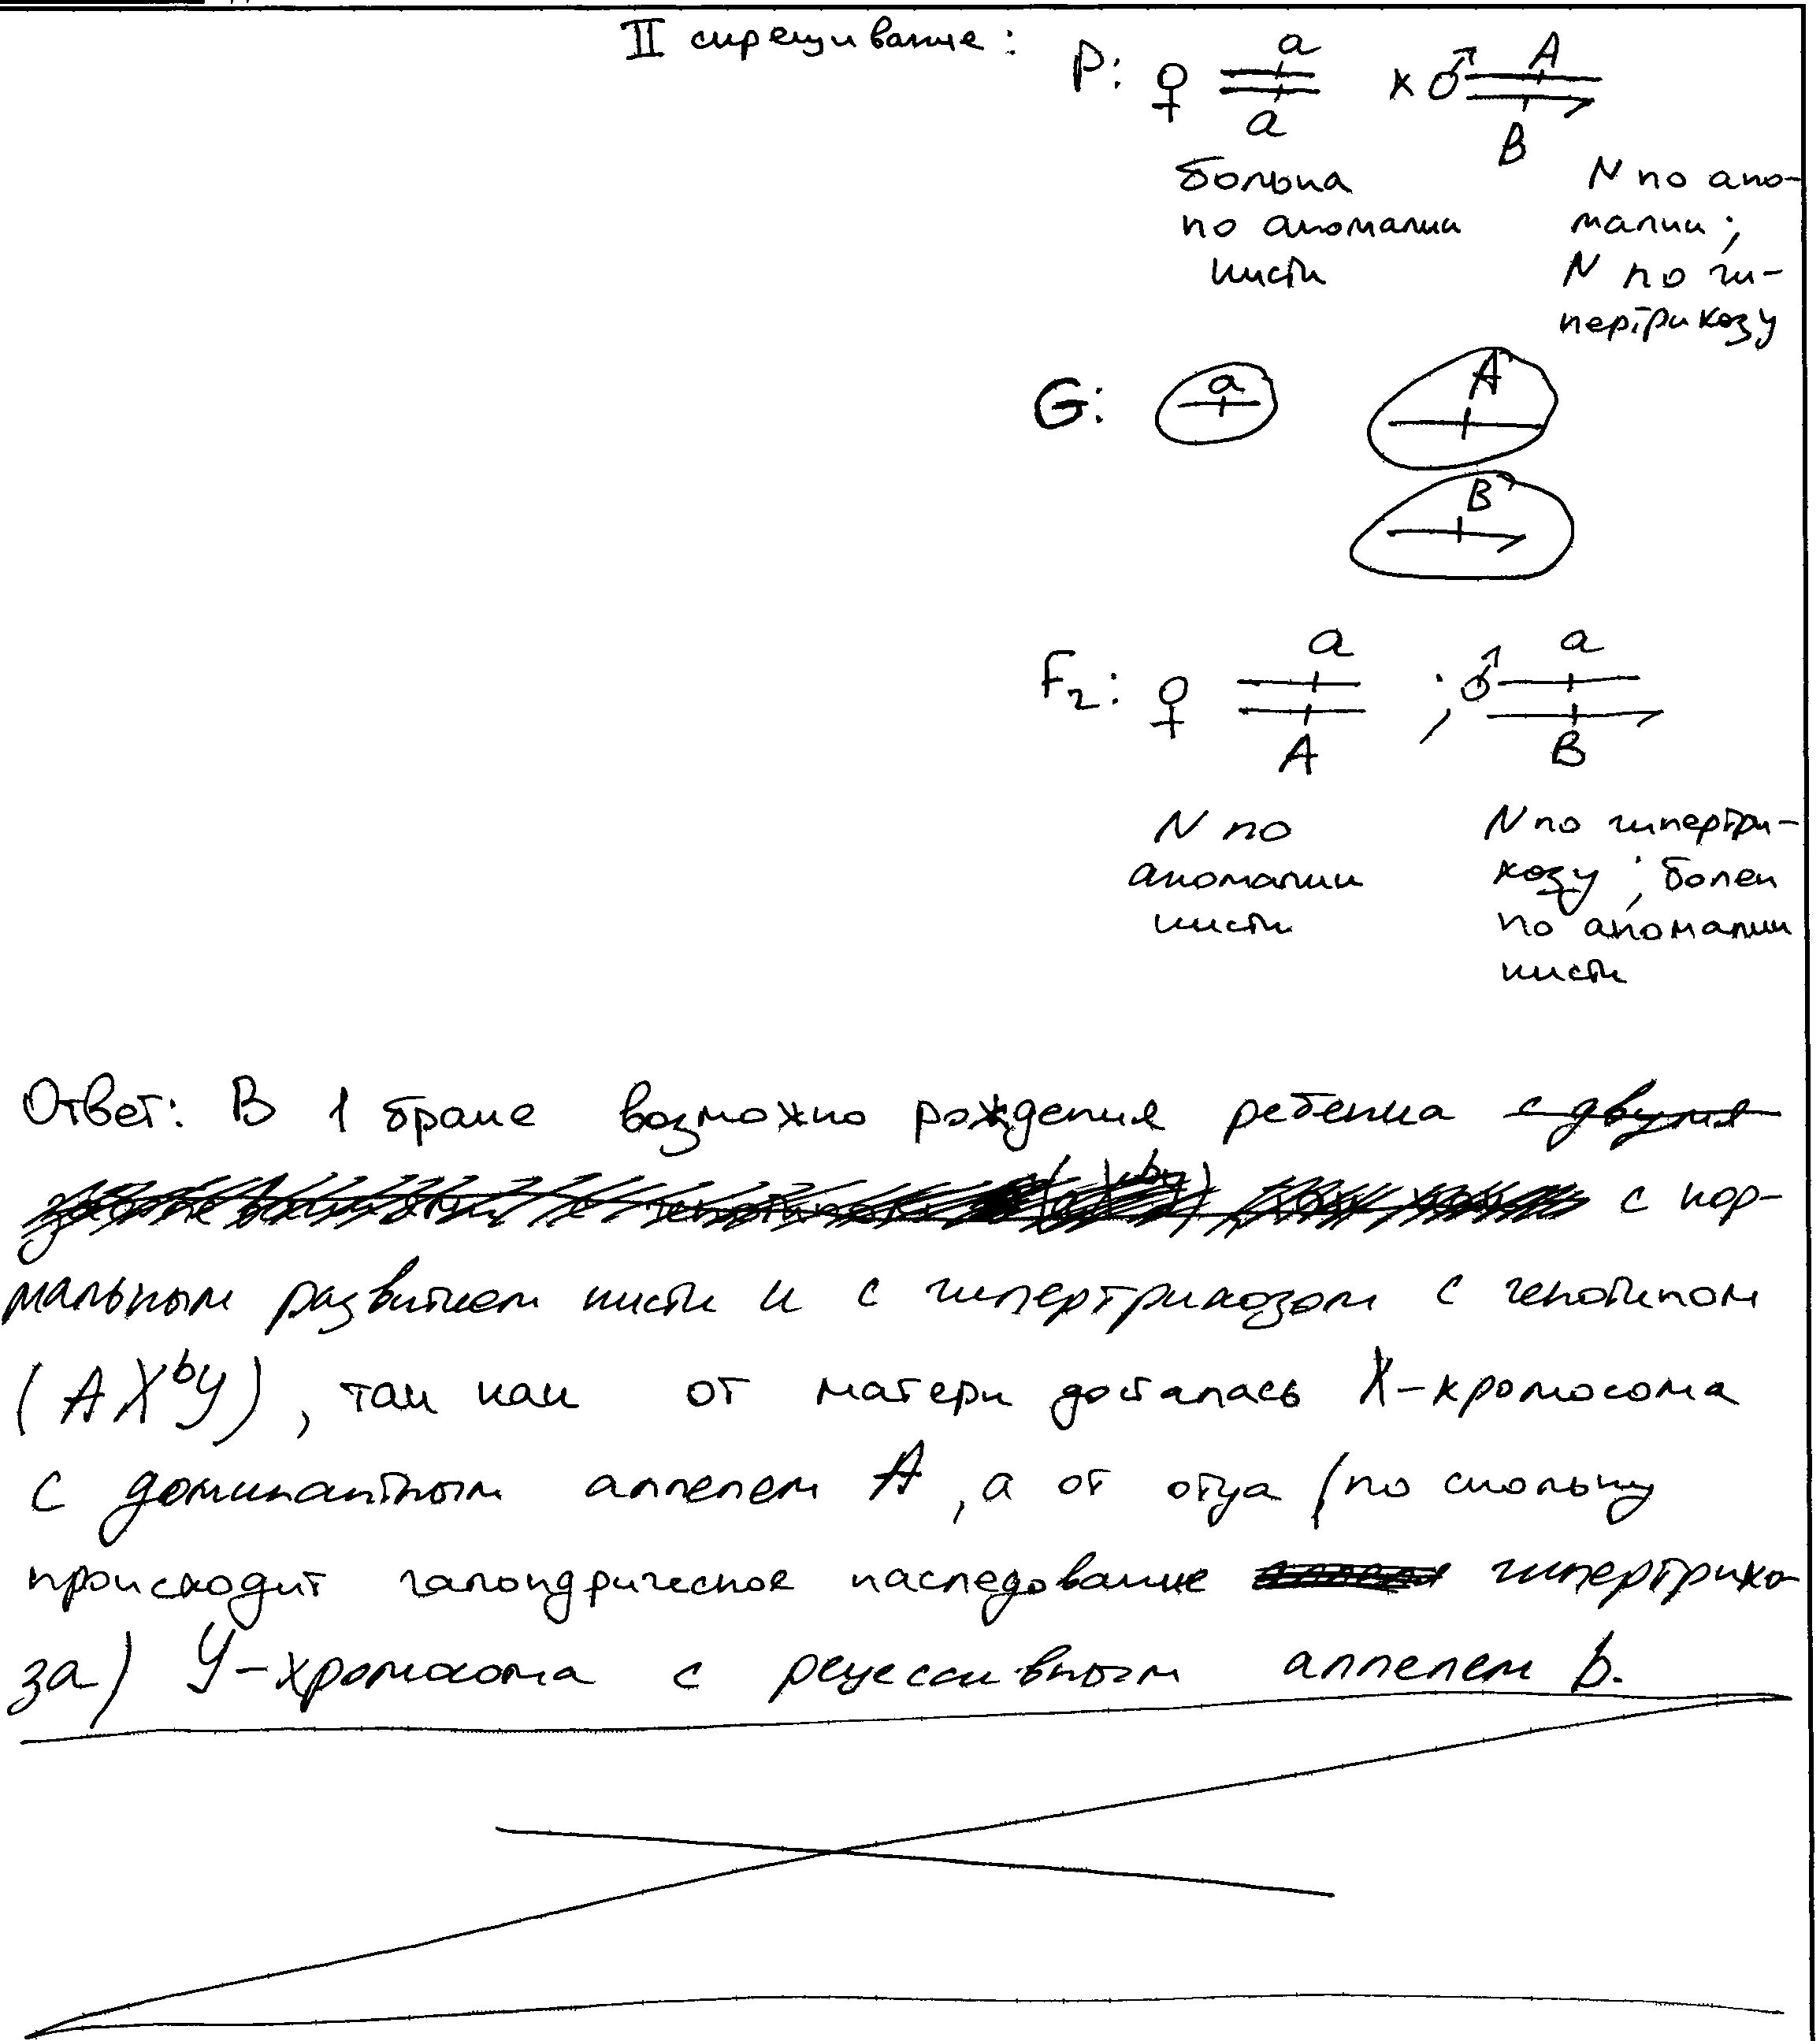 II скрещивание:
P: ♀ a a х ♂ A B
больна
по аномалии
кисти
N по ано-
малии;
N по ги-
пертрикозу
G: a A
B
F2: ♀ a A ; ♂ a B
N по
аномалии
кисти
N по гипертри-
козу; болен
по аномалии
кисти
Ответ: В 1 браке возможно рождения ребенка с двумя
с нор-
мальным развитием кисти и с гипертрикозом с генотипом
(AXᵇy), так как от матери досталась X-хромосома
с доминантным аллелем A, а от отца (по скольку
происходит галондрическое наследование гипертрихо-
за) Y-хромосома с рецессивным аллелем b.